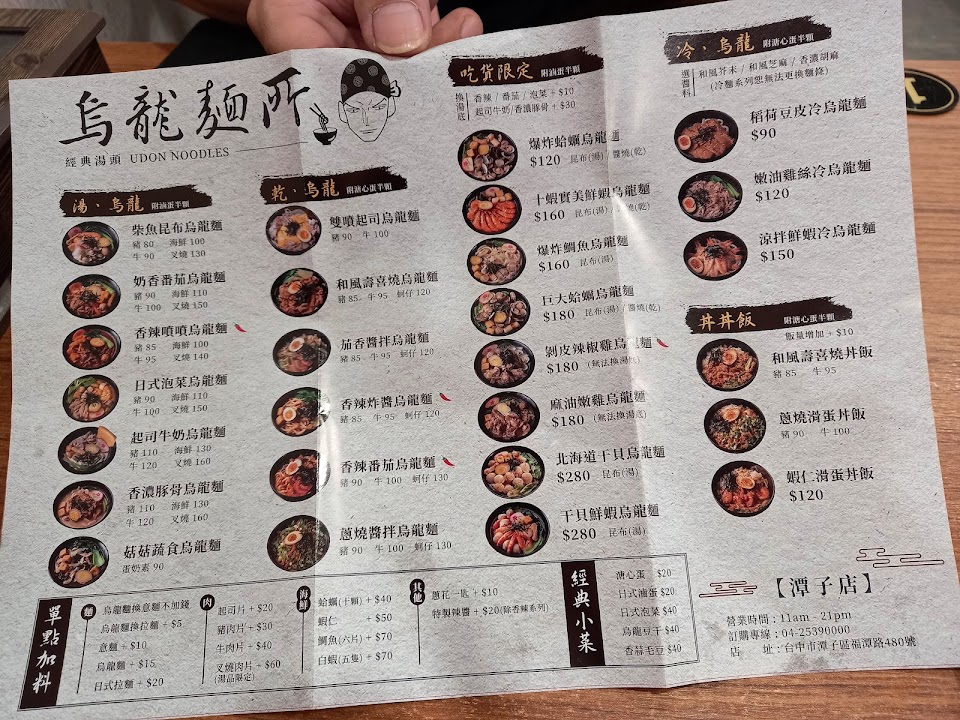 烏龍麵所
經典湯頭 UDON NOODLES
湯・烏龍 附滷蛋半顆
柴魚昆布烏龍麵
豬 80 海鮮 100
牛 90 叉燒 130
奶香番茄烏龍麵
豬 90 海鮮 110
牛 100 叉燒 150
香辣噴噴烏龍麵
豬 85 海鮮 100
牛 95 叉燒 140
日式泡菜烏龍麵
豬 90 海鮮 110
牛 100 叉燒 150
起司牛奶烏龍麵
豬 110 海鮮 130
牛 120 叉燒 160
香濃豚骨烏龍麵
豬 110 海鮮 130
牛 120 叉燒 160
菇菇蔬食烏龍麵
蛋奶素 90
乾・烏龍 附滷蛋半顆
雙噴起司烏龍麵
豬 90 牛 100
和風壽喜燒烏龍麵
豬 85 牛 95 蚵仔 120
茄香醬拌烏龍麵
豬 85 牛 95 蚵仔 120
香辣炸醬烏龍麵
豬 85 牛 95 蚵仔 120
香辣番茄烏龍麵
豬 90 牛 100 蚵仔 130
蔥燒醬拌烏龍麵
豬 90 牛 100 蚵仔 130
吃貨限定 附滷蛋半顆
換湯底
香辣 / 番茄 / 泡菜 + $10
起司牛奶/香濃豚骨 + $30
爆炸蛤蠣烏龍麵
$120 昆布(湯) / 醬燒(乾)
十蝦實美鮮蝦烏龍麵
$160 昆布(湯) / 醬燒(乾)
爆炸鯛魚烏龍麵
$160 昆布(湯)
巨大蛤蠣烏龍麵
$180 昆布(湯) / 醬燒(乾)
剝皮辣椒雞烏龍麵
$180 (無法換湯底)
麻油嫩雞烏龍麵
$180 (無法換湯底)
北海道干貝烏龍麵
$280 昆布(湯)
干貝鮮蝦烏龍麵
$280 昆布(湯)
冷・烏龍 附溏心蛋半顆
選醬料
和風芥末 / 和風芝麻 / 香濃胡麻
(冷麵系列恕無法更換麵條)
稻荷豆皮冷烏龍麵
$90
嫩油雞絲冷烏龍麵
$120
涼拌鮮蝦冷烏龍麵
$150
丼丼飯 附溏心蛋半顆
飯量增加 + $10
和風壽喜燒丼飯
豬 85 牛 95
蔥燒滑蛋丼飯
豬 90 牛 100
蝦仁滑蛋丼飯
$120
單點加料
麵
烏龍麵換意麵不加錢
烏龍麵換拉麵 + $5
意麵 + $10
烏龍麵 + $15
日式拉麵 + $20
肉
起司片 + $20
豬肉片 + $30
牛肉片 + $40
叉燒肉片 + $60
(湯品限定)
海鮮
蛤蠣(十顆) + $40
蝦仁 + $50
鯛魚(六片) + $70
白蝦(五隻) + $70
其他
蔥花一匙 + $10
特製辣醬 + $20(除香辣系列)
經典小菜
溏心蛋 $20
日式滷蛋 $20
日式泡菜 $40
烏龍豆干 $40
香蒜毛豆 $40
【潭子店】
營業時間：11am - 21pm
訂購專線：04-25390000
店 址：台中市潭子區福潭路480號